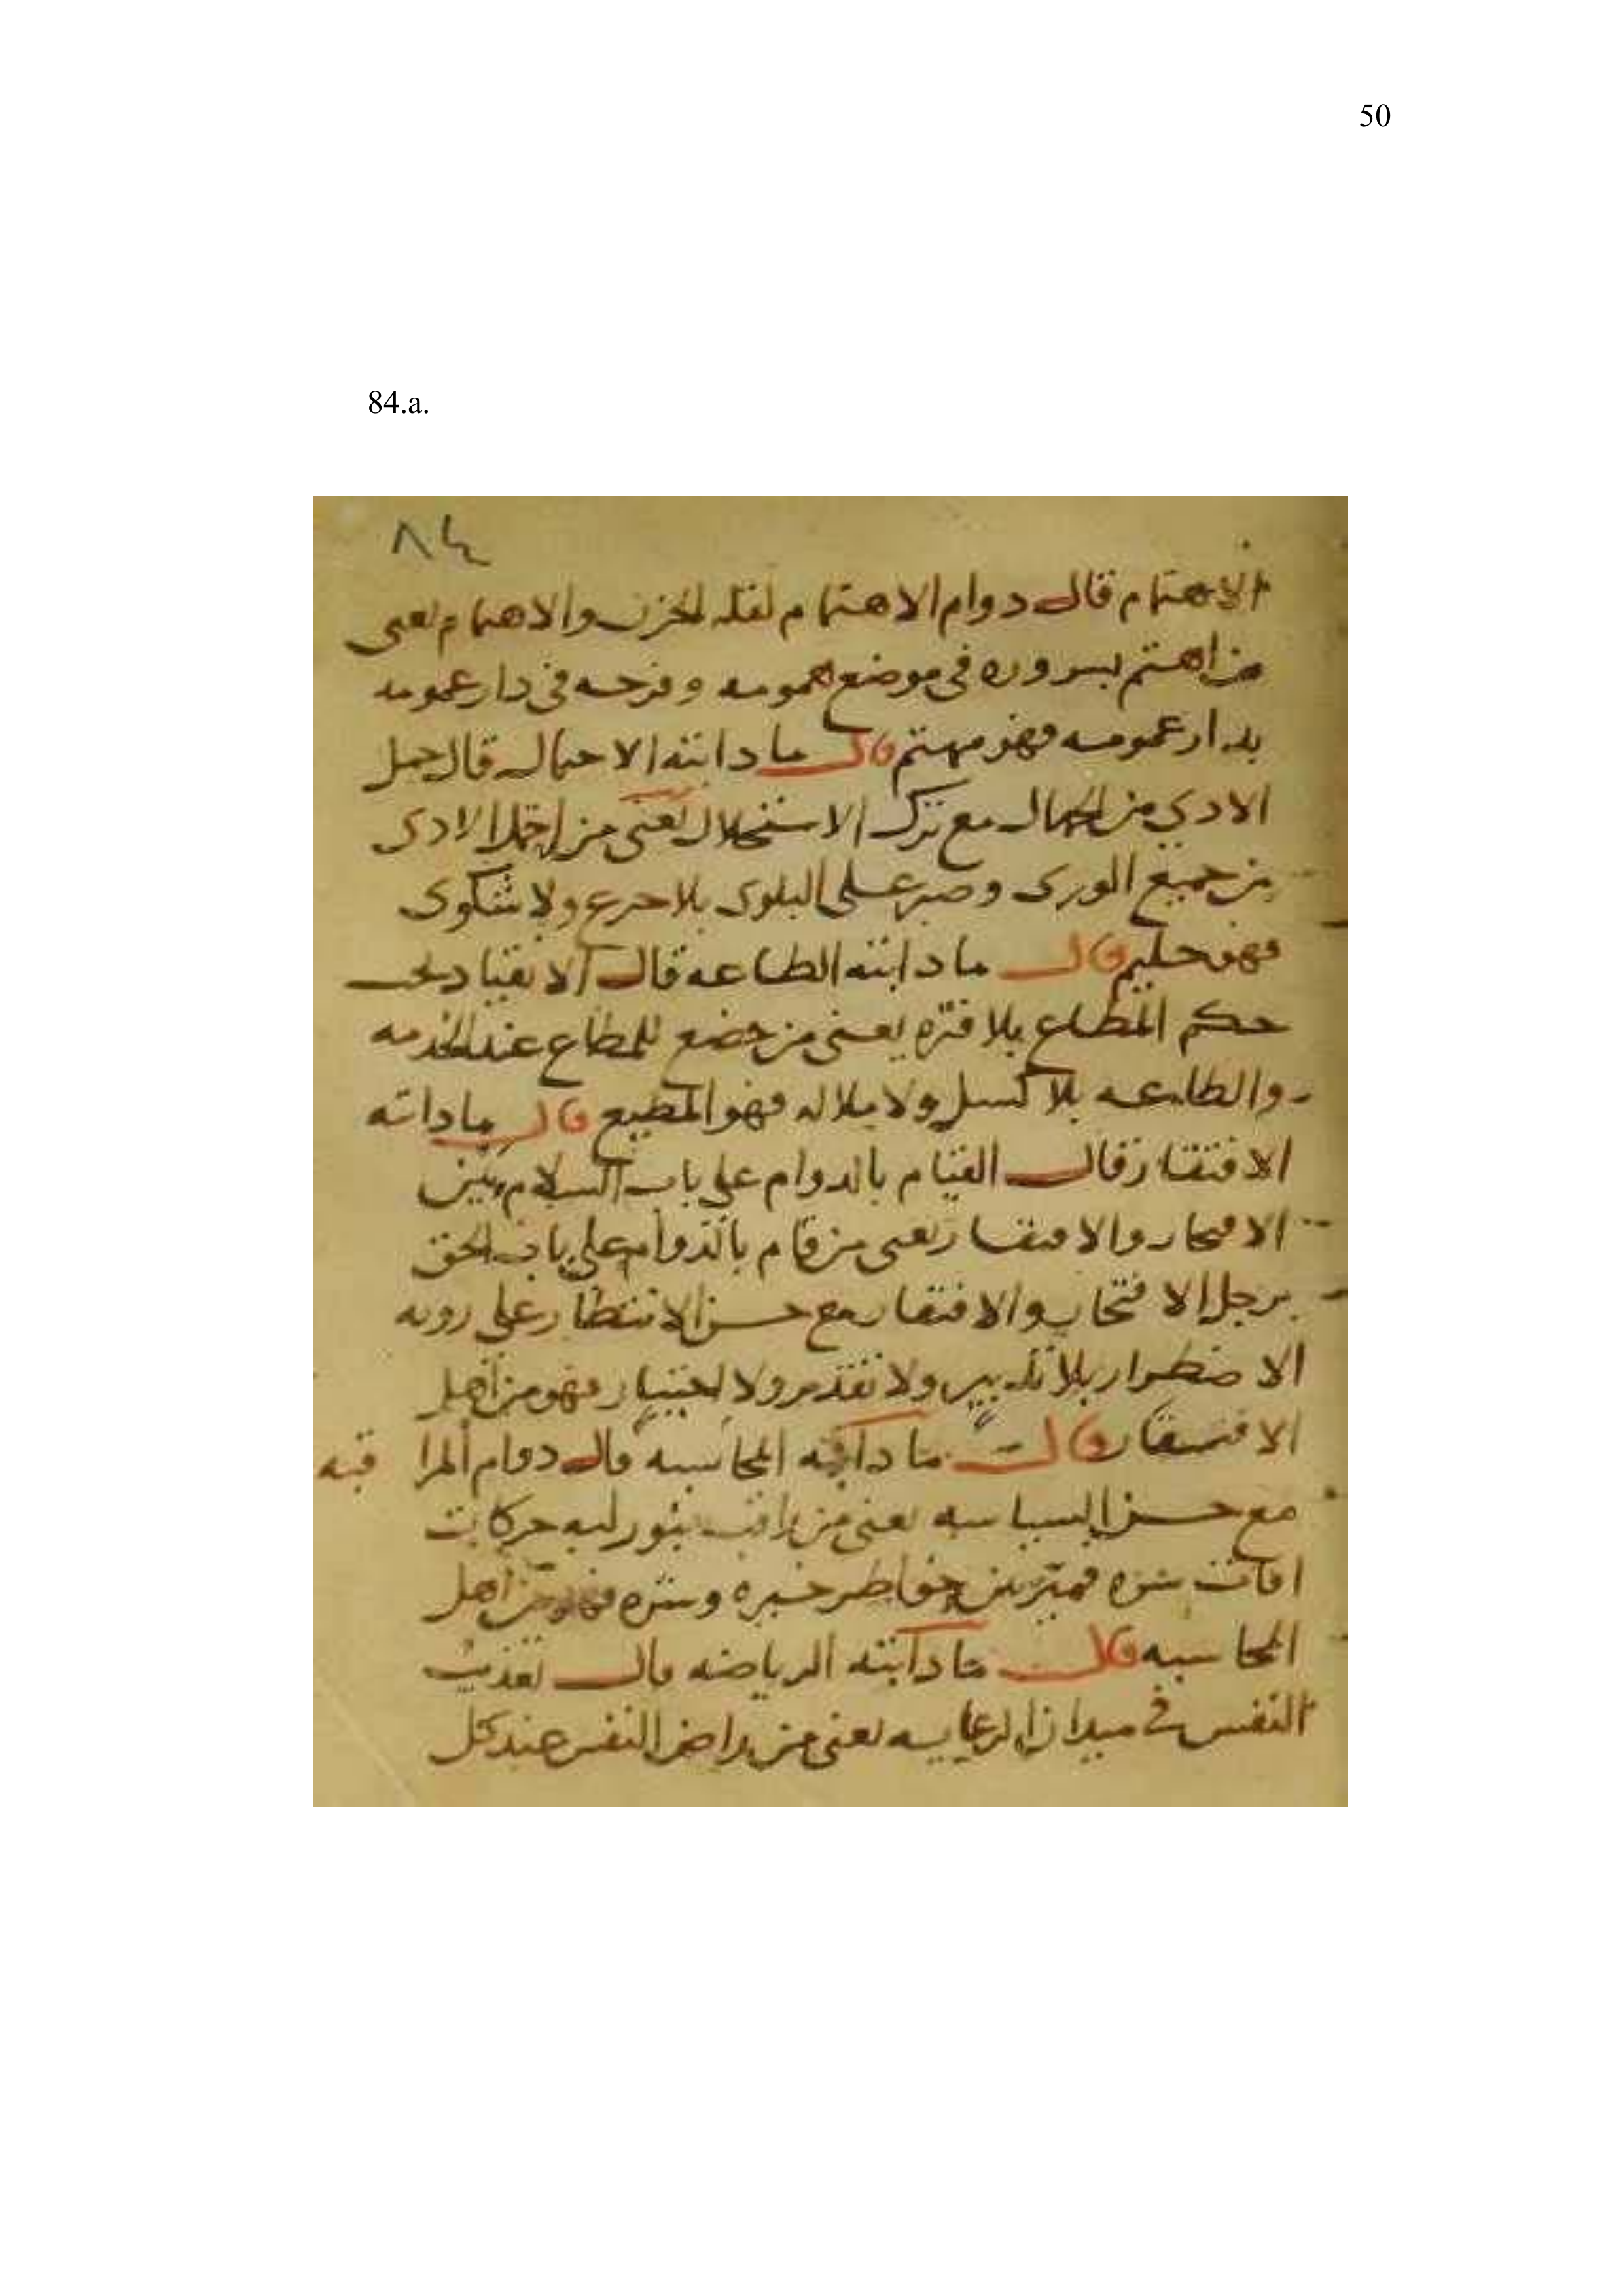 50
84.a.
٨٤
الاهتمام قال دوام الاهتمام لفله الحزن والاهتمام يعنى
من اهتم بسروره في موضع همومه وفرحه في دار غمومه
بدار غمومه فهو مهتم قال ما دانته الاحمال قال حمل
الادي من الجمال مع ترك الاستحلال يعنى من احتمل الادى
من جميع الورى وصبر على البلوى بلا جزع ولا شكوى
فهو حليم قال ما دانته الطاعه قال الانقياد تحت
حكم المطاع بلا فتره يعنى من خضع للمطاع عند الخدمه
والطاعه بلا كسل ولا ملاله فهو المطيع قال ما داته
الافتقار قال القيام بالدوام على باب السلام بين
الافتحار والافتقار يعنى من قام بالدوام على باب الحق
برجل الافتخار والافتقار مع حسن الانتظار على رويه
الاضطرار بلا تدبير ولا تقدير ولا اختيار فهو من اهل
الافتقار قال ما دانته المحاسبه قال دوام المراقبه
مع حسن السياسه يعنى من راقب بنور لبه حركات
افات سره فميز بين خواطر خيره وشره فهو من اهل
المحاسبه قال ما دانته الرياضه قال تهذيب
النفس في ميدان الرعايه يعنى من راض النفس عند كل